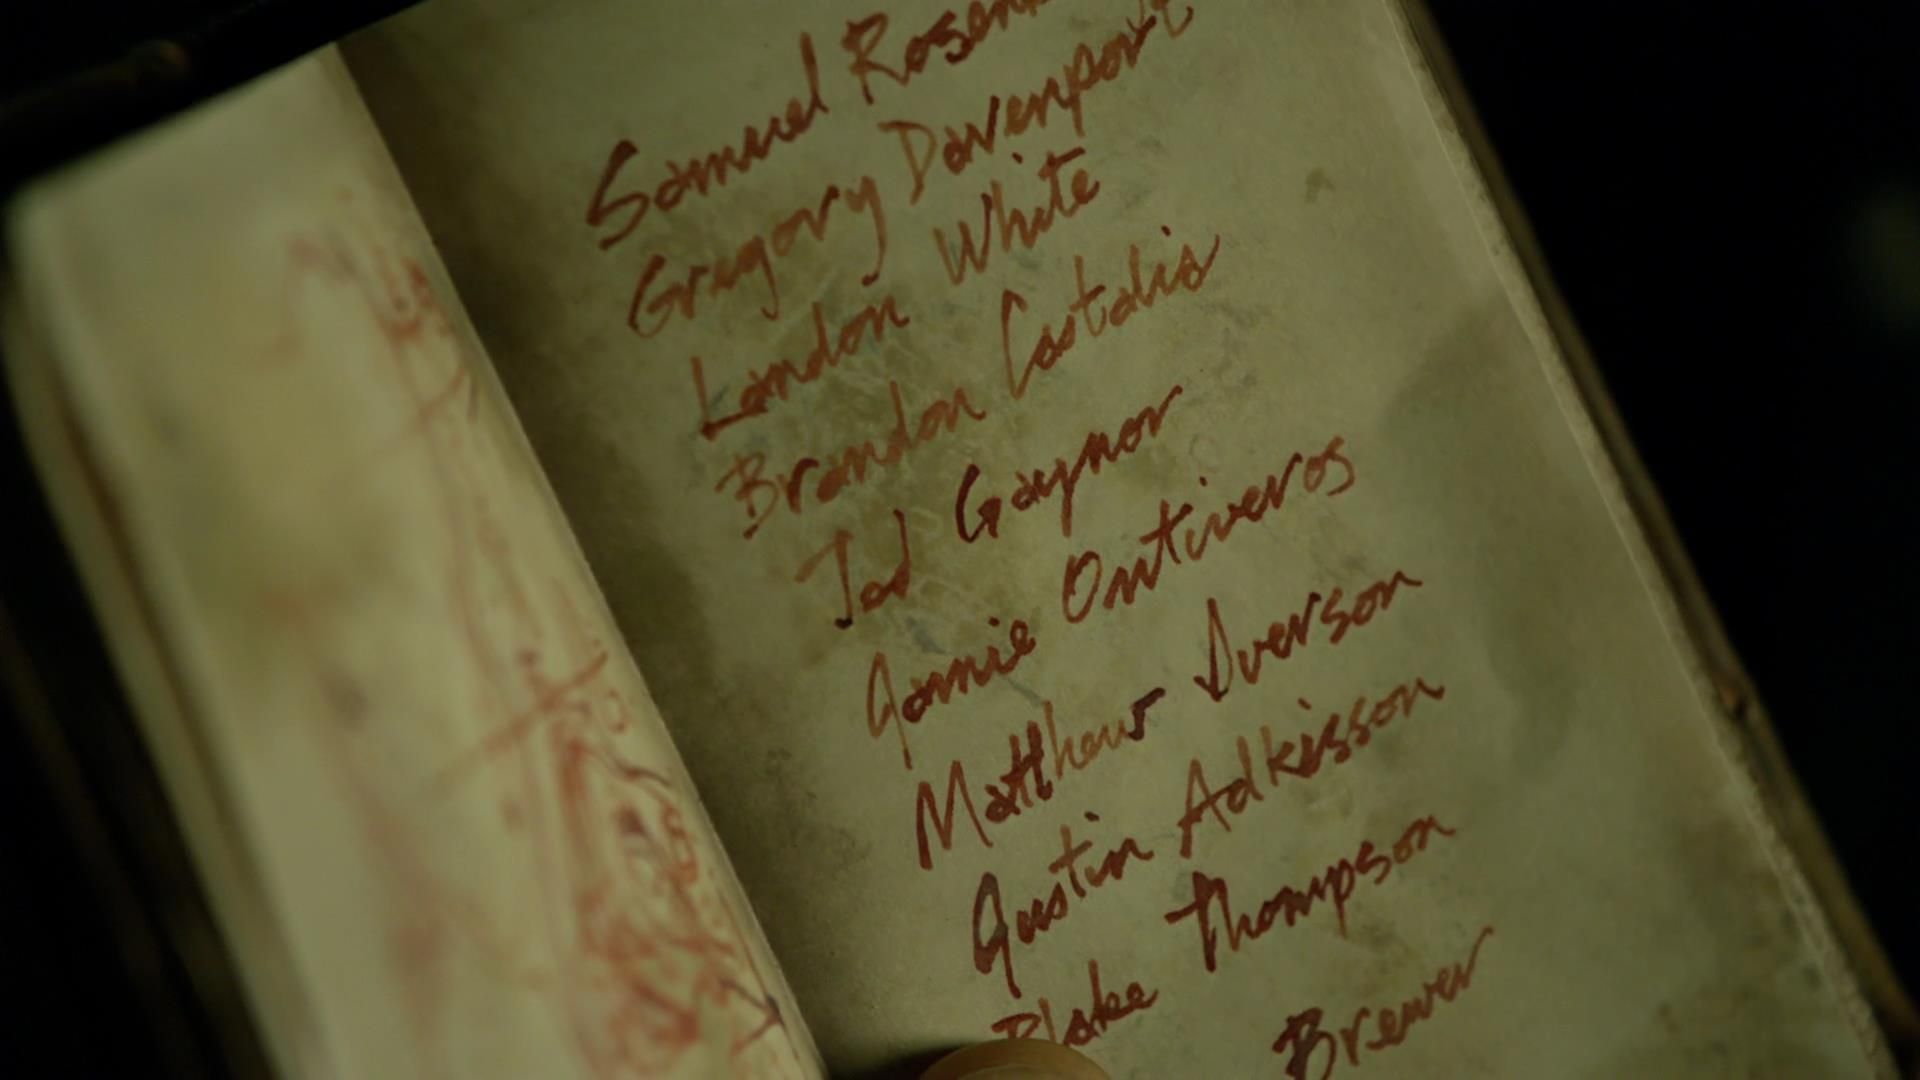 Samuel
Gregory Davenport
Landon White
Brandon Castalis
Tad Gaynor
Jamie Ontiveros
Matthew Iverson
Justin Adkisson
Blake Thompson
Brewer